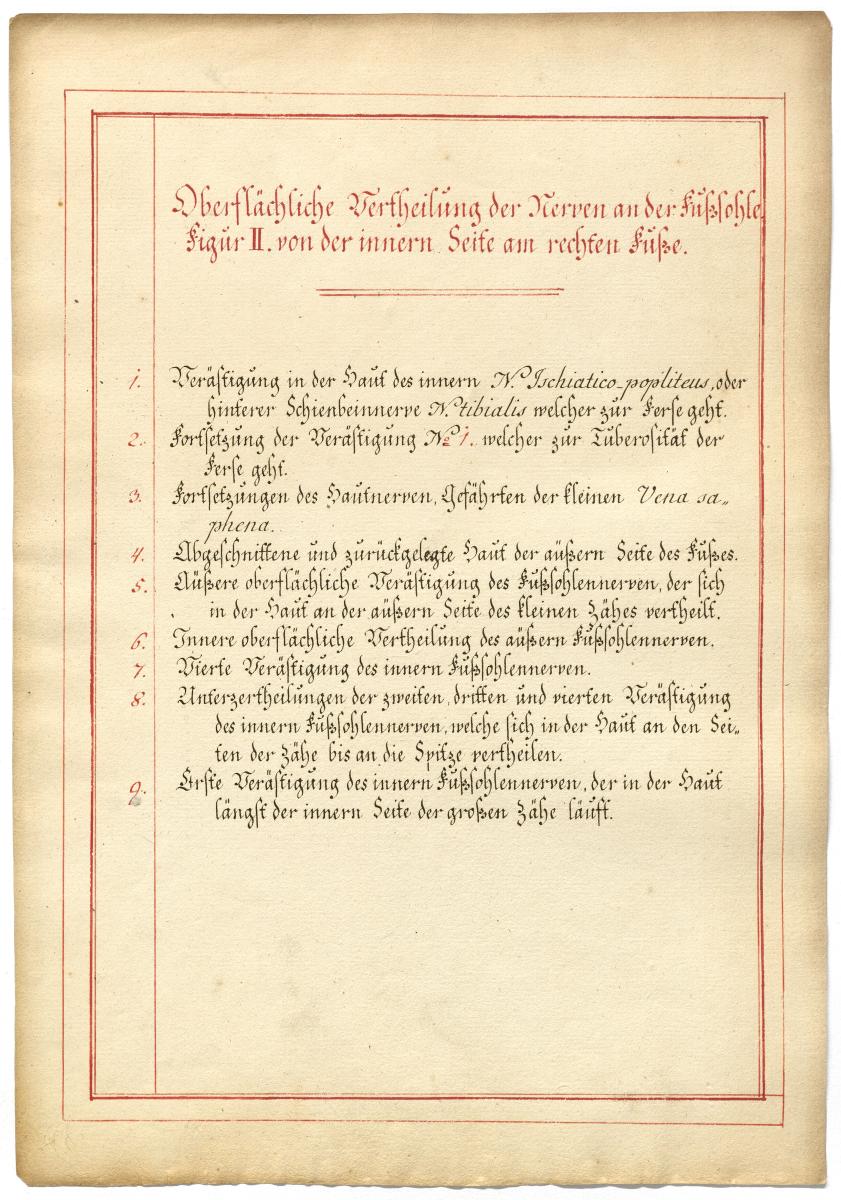 Oberflächliche Vertheilung der Nerven an der Fußsohle.
Figur II. von der innern Seite am rechten Fuße.
1. Verästigung in der Haut des innern N. Ischiatico-popliteus, oder
hinterer Schienbeinnerve N. tibialis welcher zur Ferse geht.
2. Fortsetzung der Verästigung No 1. welcher zur Tuberosität der
Ferse geht.
3. Fortsetzungen des Hautnerven, Gefährten der kleinen Vena sa„
phena.
4. Abgeschnittene und zurückgelegte Haut der äußern Seite des Fußes.
5. Äußere oberflächliche Verästigung des Fußsohlennerven, der sich
in der Haut an der äußern Seite des kleinen Zähes vertheilt.
6. Innere oberflächliche Vertheilung des äußern Fußsohlennerven.
7. Vierte Verästigung des innern Fußsohlennerven.
8. Unterzertheilungen der zweiten, dritten und vierten Verästigung
des innern Fußsohlennerven, welche sich in der Haut an den Sei„
ten der Zähe bis an die Spitze vertheilen.
9. Erste Verästigung des innern Fußsohlennerven, der in der Haut
längst der innern Seite der großen Zähe läuft.